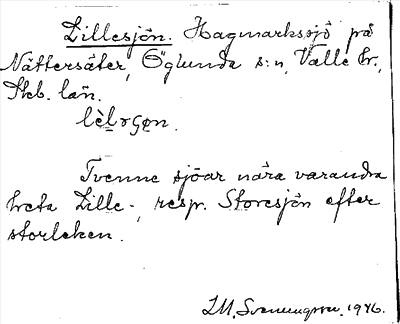 Lillesjön. Hagmarkssjö på
Nättersäter, Öglunda s:n, Valle hr.,
Skb. län.
Tvenne sjöar nära varandra
heta Lille-, resp. Storesjön efter
storleken.
I.M. Svenungsson. 1946.